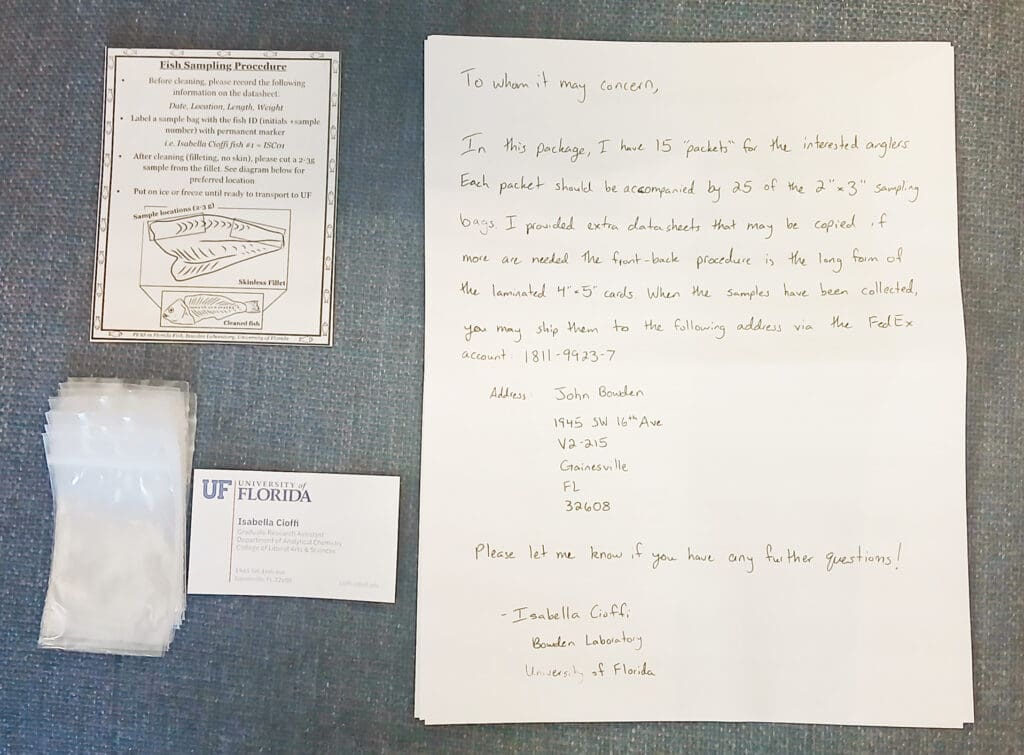 Fish Sampling Procedure
Before cleaning, please record the following
information on the datasheet.
Date, Location, Length, Weight
Label a sample bag with the fish ID (initials +sample
number) with permanent marker
i.e. Isabella Cioffi fish #1 = ISC01
After cleaning (filleting, no skin), please cut a 2-3g
sample from the fillet. See diagram below for
preferred location.
Put on ice or freeze until ready to transport to UF
Sample locations (2-3 g)
Skinless Fillet
Cleaned fish
PFAS in Florida Fish, Bowden Laboratory, University of Florida
UF UNIVERSITY of
FLORIDA
Isabella Cioffi
Graduate Research Assistant
Department of Analytical Chemistry
College of Liberal Arts & Sciences
Gainesville, FL 32608
To whom it may concern,
In this package, I have 15 "packets" for the interested anglers
Each packet should be accompanied by 25 of the 2"x3" sampling
bags. I provided extra datasheets that may be copied if
more are needed the front-back procedure is the long form of
the laminated 4"x5" cards. When the samples have been collected,
you may ship them to the following address via the FedEx
account: 1811-9923-7
Address: John Bowden
1945 SW 16th Ave
V2-215
Gainesville
FL
32608
Please let me know if you have any further questions!
- Isabella Cioffi
Bowden Laboratory
University of Florida